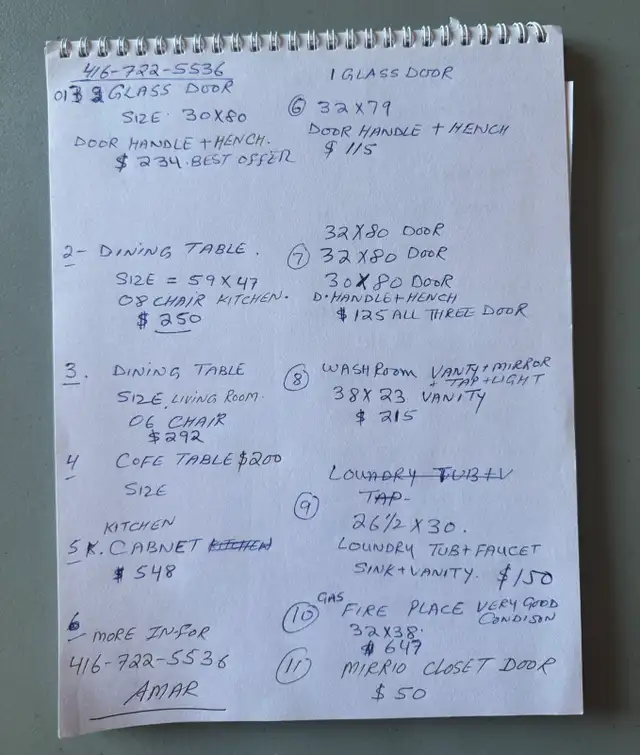 416-722-5536
GLASS DOOR
SIZE 30X80
DOOR HANDLE + HENCH.
$ 234. BEST OFFER
2- DINING TABLE.
SIZE = 59 X 47
08 CHAIR KITCHEN.
$ 250
3. DINING TABLE
SIZE LIVING ROOM.
06 CHAIR
$292
4 COFE TABLE $200
SIZE
KITCHEN
5 K. CABNET KITCHEN
$ 548
6 MORE IN-FOR
416-722-5536
AMAR
1 GLASS DOOR
6 32X79
DOOR HANDLE + HENCH
$ 115
32X80 DOOR
7 32X80 DOOR
30X80 DOOR
D. HANDLE + HENCH
$125 ALL THREE DOOR
8 WASHROOM VANTY + MIRROR
+ TAP + LIGHT
38X23 VANITY
$ 215
LOUADRY TUB + V
TAP-
9
26 1/2 X 30.
LOUNDRY TUB + FAUCET
SINK + VANITY. $150
GAS
10 FIRE PLACE VERY GOOD
CONDISON
32X38.
$ 647
11 MIRRIO CLOSET DOOR
$ 50